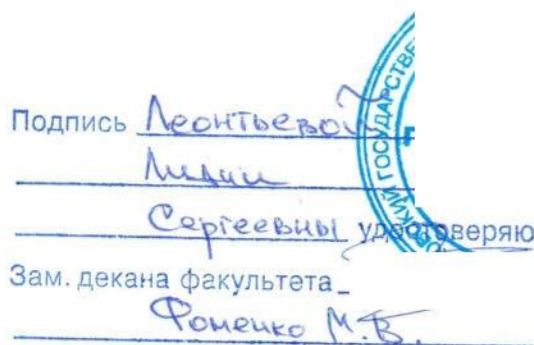 Подпись Леонтьевой
Лидии
Сергеевны удостоверяю
Зам. декана факультета
Фоменко М.В.
КИЙ ГОСУДАРСТВЕ